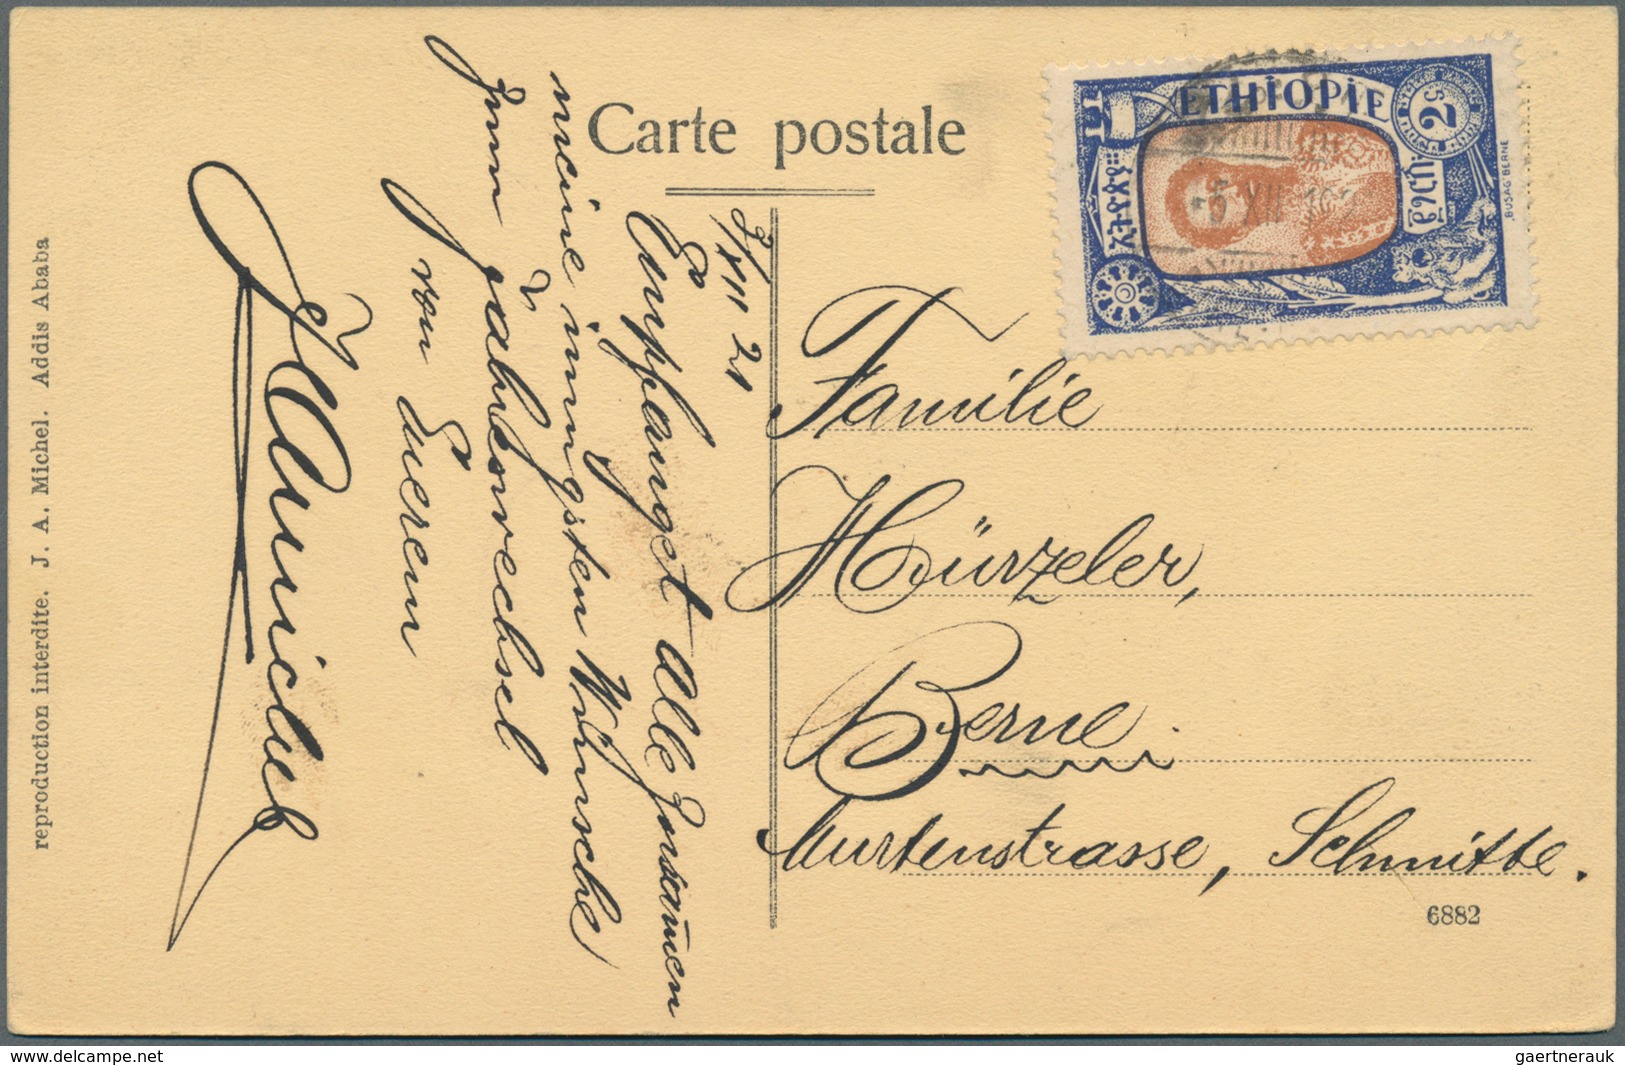 Carte postale
ETHIOPIE
2
BUSAG. BERNE
-5 XII 192
3/XII 21
Empfanget Alle zusamen
meine innigsten Wünsche
zum Jahreswechsel
von Euerem
reproduction interdite. J. A. Michel. Addis Ababa
Familie
Hürzeler,
Berne
Murtenstrasse, Schmitte.
6882
www.delcampe.net
gaertnerauk